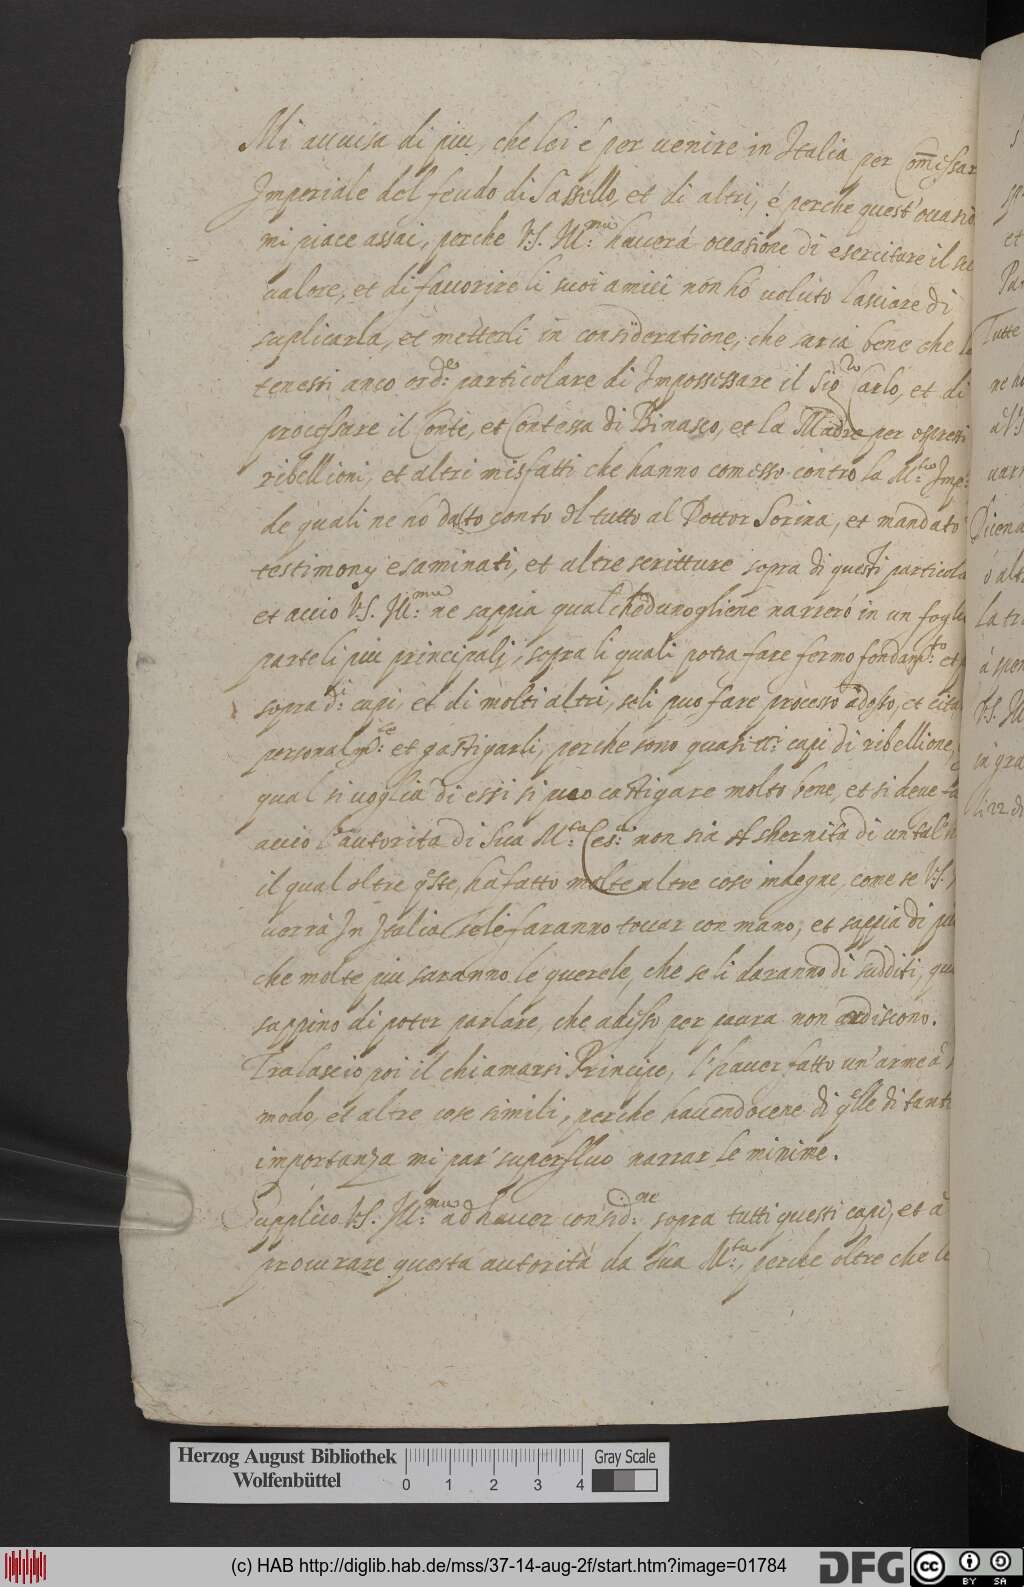 Mi auuisa di piu, che lei é per uenire in Italia per Com̄issar
Imperiale del feudo di Sassello, et di altri, é perche quest'occasio
mi piace assai, perche V.S. Ill:ma hauerá occasione di esercitare il su
ualore, et di fauorire li suoi amici non hó uoluto lasciare di
suplicarla, et metterli in consideratione, che saria bene che
tenesti anco ord:e particolare di Impossessare il Sig Carlo, et di
processare il Conte, et Contessa di Binasco, et la Madre per espressi
ribellioni, et altri misfatti che hanno comesso contro la M:tà Imp:
de quali ne hó datto conto del tutto al Dottor Sorina, et mandato
testimonij esaminati, et altre scritture sopra di questi particola
et accio V.S. Ill:ma ne sappia qual chedunogliene narreró in un fogli
parte li piu principalj, sopra li quali potra fare fermo fondam:to et
sopra d:i capi, et di molti altri, seli puo fare processo adesso, et cita
personalm:te et gastigarli, perche sono quasi tt:i capi di ribellione,
qual si uoglia di essi si puo castigare molto bene, et si deue fa
accio l'autorita di Sua M:tà Ces:a non sia shernita di un tal'
il qual oltre q̃ste, há fatto molte altre cose indegne, come se V.S.
uerrà In Italia seli faranno toccar con mano, et sappia di piu
che molte piu saranno le querele, che se li daranno di sudditi, qua
sappino di poter parlare, che adesso per paura non ardiscono.
Tralascio poi il chiamarsi Principe, l'hauer fatto un'arme à
modo, et altre cose simili, perche hauendocene di q̃lle di tant
importanza mi par' superfluo narrar le minime.
Supplico V.S. Ill:ma ad hauer consid:ne sopra tutti questi capi, et à
procurare questa autorità da Sua M:tà, perche oltre che le
Herzog August Bibliothek
Wolfenbüttel
0 1 2 3 4
Gray Scale
(c) HAB http://diglib.hab.de/mss/37-14-aug-2f/start.htm?image=01784
DFG
CC BY SA